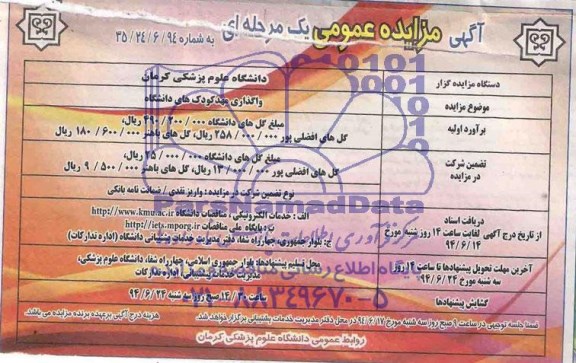 آگهی مزایده عمومی یک مرحله ای به شماره ۳۵/۲۴/۶/۹۴
دستگاه مزایده گزار
دانشگاه علوم پزشکی کرمان
موضوع مزایده
واگذاری مهدکودک های دانشگاه
برآورد اولیه
مبلغ گل های دانشگاه ۴۹۰/۲۰۰/۰۰۰ ریال،
گل های افضلی پور ۲۵۸/۰۰۰/۰۰۰ ریال، گل های باهنر ۱۸۰/۶۰۰/۰۰۰ ریال
تضمین شرکت
در مزایده
مبلغ گل های دانشگاه ۲۵/۰۰۰/۰۰۰ ریال،
گل های افضلی پور ۱۳/۰۰۰/۰۰۰ ریال، گل های باهنر ۹/۵۰۰/۰۰۰ ریال
نوع تضمین شرکت در مزایده: واریز نقدی / ضمانت نامه بانکی
دریافت اسناد
از تاریخ درج آگهی لغایت ساعت ۱۴ روز شنبه مورخ
۹۴/۶/۱۴
الف: خدمات الکترونیکی، مناقصات دانشگاه http://www.kmu.ac.ir
ب: پایگاه ملی مناقصات http://iets.mporg.ir
ج: بلوار جمهوری، چهارراه شفا، دفتر مدیریت خدمات پشتیبانی دانشگاه (اداره تدارکات)
آخرین مهلت تحویل پیشنهادها تا ساعت ۱۴ روز
سه شنبه مورخ ۹۴/۶/۲۴
محل تسلیم پیشنهادها: بلوار جمهوری اسلامی، چهارراه شفا، دانشگاه علوم پزشکی،
مدیریت خدمات پشتیبانی اداره تدارکات
گشایش پیشنهادها
روز سه شنبه ۹۴/۶/۲۴
ضمنا جلسه توجیهی در ساعت ۹ صبح روز سه شنبه مورخ ۹۴/۶/۱۷ در محل دفتر مدیریت خدمات پشتیبانی برگزار خواهد شد.
هزینه درج آگهی برعهده برنده مزایده می باشد.
روابط عمومی دانشگاه علوم پزشکی کرمان
ParsNamadData
پایگاه اطلاع رسانی